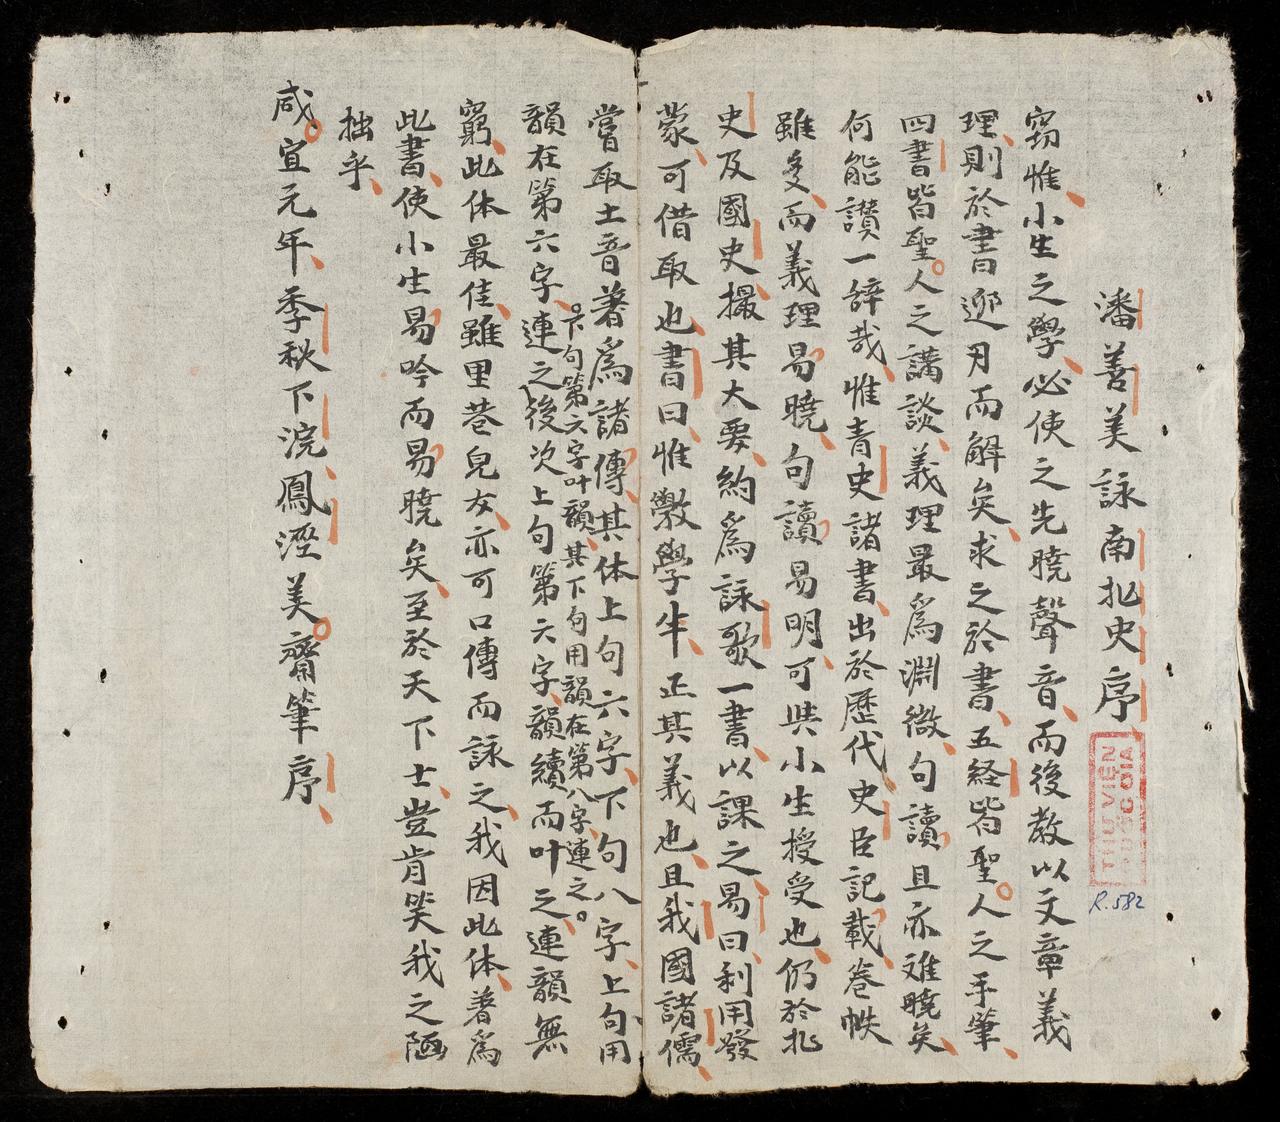 潘善美詠南北史序
THƯ VIỆN
QUỐC GIA
R.582
窃惟小生之學必使之先曉聲音而後教以文章義
理則於書曰迎刃而解矣求之於書五経皆聖人之手筆
四書皆聖人之講談義理最爲淵微句讀且亦难曉矣
何能讃一辞哉惟青史諸書出於歷代史臣記載卷帙
雖多而義理易曉句讀易明可與小生授受也仍於北
史及國史撮其大要約爲詠歌一書以課之易曰利用發
蒙可借取也書曰惟斅學半正其義也且我國諸儒
嘗取土音著爲諸傳其体上句六字下句八字上句用
韻在第六字下句第六字叶韻其下句用韻在第八字連之
連之後次上句第六字韻續而叶之連韻無
窮此体最佳雖里巷兒女亦可口傳而詠之我因此体著爲
此書使小生易吟而易曉矣至於天下士豈肯笑我之陋
拙乎
咸宜元年季秋下浣鳳瀅美齋筆序